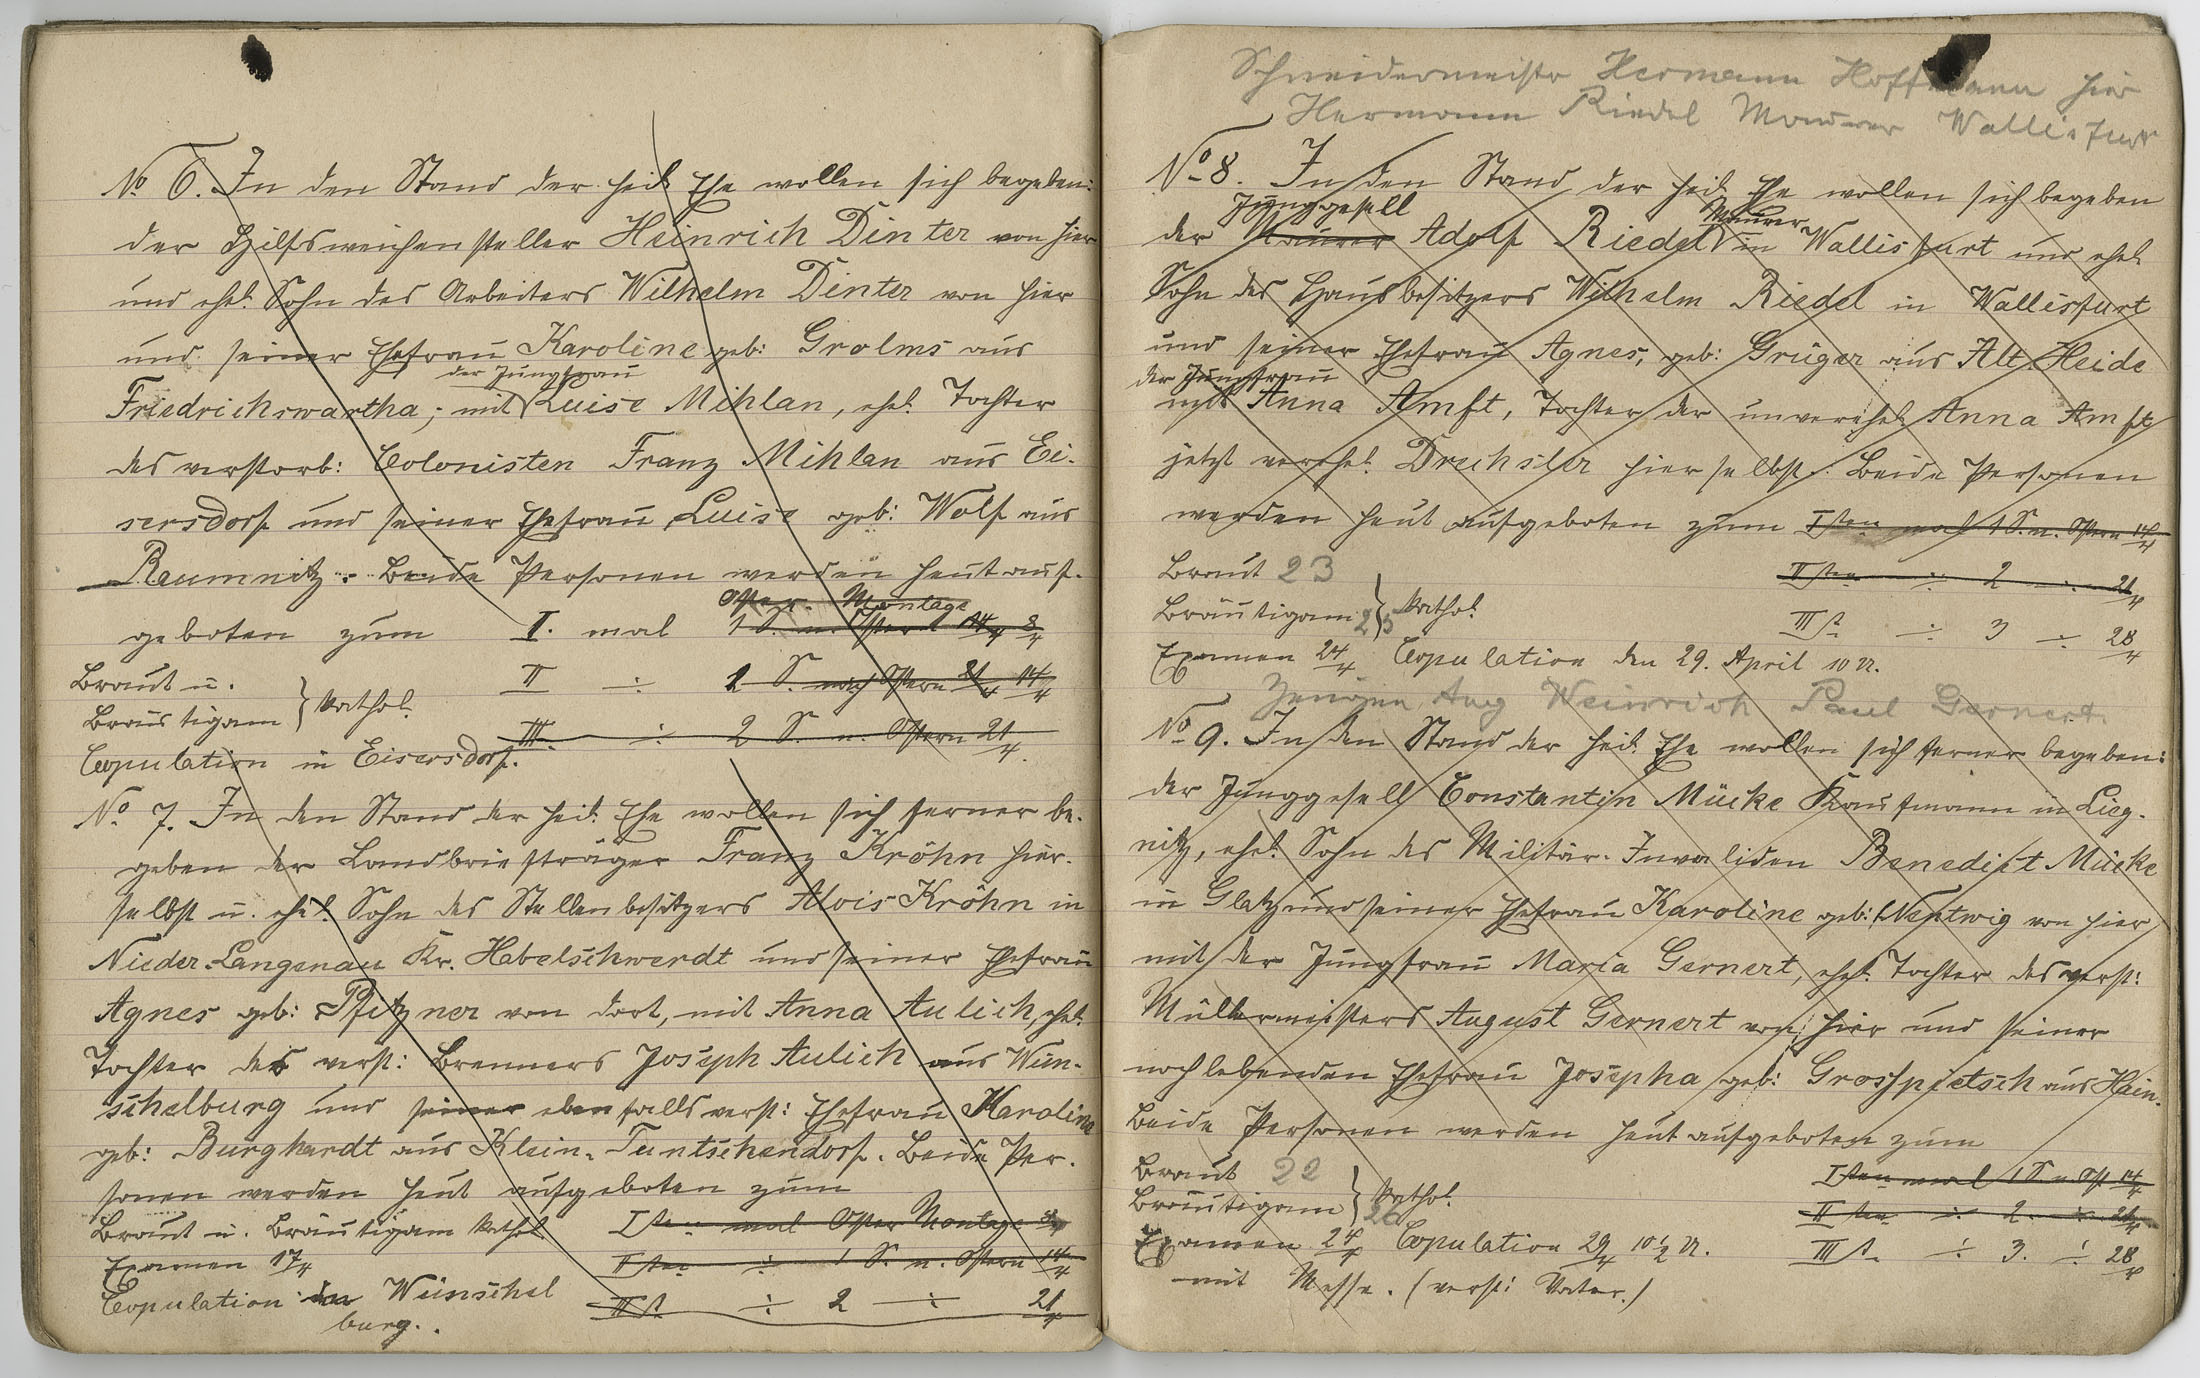 No 6. In den Stand der heil. Ehe wollen sich begeben:
der Hilfsweichensteller Heinrich Dinter von hier
und ehel. Sohn des Arbeiters Wilhelm Dinter von hier
und seiner Ehefrau Karoline geb: Grolms aus
der Jungfrau
Friedrichswartha; mit Luise Mihlan, ehel. Tochter
des verstorb: Colonisten Franz Mihlan aus Ei-
sersdorf und seiner Ehefrau Luise geb: Wolf aus
Reumnitz. Beide Personen werden heut auf-
Oster-Montage
geboten zum I. mal 1 S. n. Ostern 14/4 8/4
Braut u.
II ÷ 1 S. nach Ostern 21/4 14/4
Bräutigam } kathol.
III. ÷ 2 S. n. Ostern 21/4.
Copulation in Eisersdorf.
No. 7. In den Stand der heil. Ehe wollen sich ferner be-
geben der Landbriefträger Franz Kröhn hier-
selbst u. ehel. Sohn des Stellenbesitzers Alois Kröhn in
Nieder-Langenau Kr. Habelschwerdt und seiner Ehefrau
Agnes geb: Pfitzner von dort, mit Anna Aulich, ehel.
Tochter des verst: Brenners Joseph Aulich aus Wün-
schelburg und seiner ebenfalls verst: Ehefrau Karolina
geb: Burghardt aus Klein-Tuntschendorf. Beide Per-
sonen werden heut aufgeboten zum
Braut u. Bräutigam kathol.
Isten mal Oster Montage 8/4
Examen 17/4
IIsten ÷ 1 S. n. Ostern 14/4
Copulation in Wünschel
burg.
IIIt. ÷ 2 ÷ 21/4
Schneidermeister Hermann Hoffmann hier
Hermann Riedel Maurer Wallisfurt
No 8. In den Stand der heil. Ehe wollen sich begeben
Junggesell Maurer
der Maurer Adolf Riedel in Wallisfurt und ehel.
Sohn des Hausbesitzers Wilhelm Riedel in Wallisfurt
und seiner Ehefrau Agnes, geb: Grüger aus Alt-Heide
der Jungfrau
mit Anna Amft, Tochter der unverehel. Anna Amft
jetzt verehel. Drechsler hierselbst. Beide Personen
werden heut aufgeboten zum Isten mal 1 S. n. Ostern 14/4
Braut 23
IIsten ÷ 2 ÷ 21/4
Bräutigam 25 } kathol.
IIIt. ÷ 3 ÷ 28/4
Examen 24/4 Copulation den 29. April 10 U.
Zeugen Aug Weinrich Paul Gernert
No 9. In den Stand der heil. Ehe wollen sich ferner begeben:
der Junggesell Constantin Mücke Kaufmann in Lieg-
nitz, ehel. Sohn des Militär-Invaliden Benedikt Mücke
in Glatz und seiner Ehefrau Karoline geb: Nentwig von hier
mit der Jungfrau Maria Gernert, ehel. Tochter des verst:
Müllermeisters August Gernert von hier und seiner
noch lebenden Ehefrau Josepha geb: Grosspietsch aus Hain.
Beide Personen werden heut aufgeboten zum
Braut 22
Isten mal 1 S. n. Ost 14/4
Bräutigam } kathol.
IIsten ÷ 2. ÷ 21/4
Examen 24/4 Copulation 29/4 10 1/2 U.
IIIt. ÷ 3. ÷ 28/4
mit Messe. (verst: Vater.)